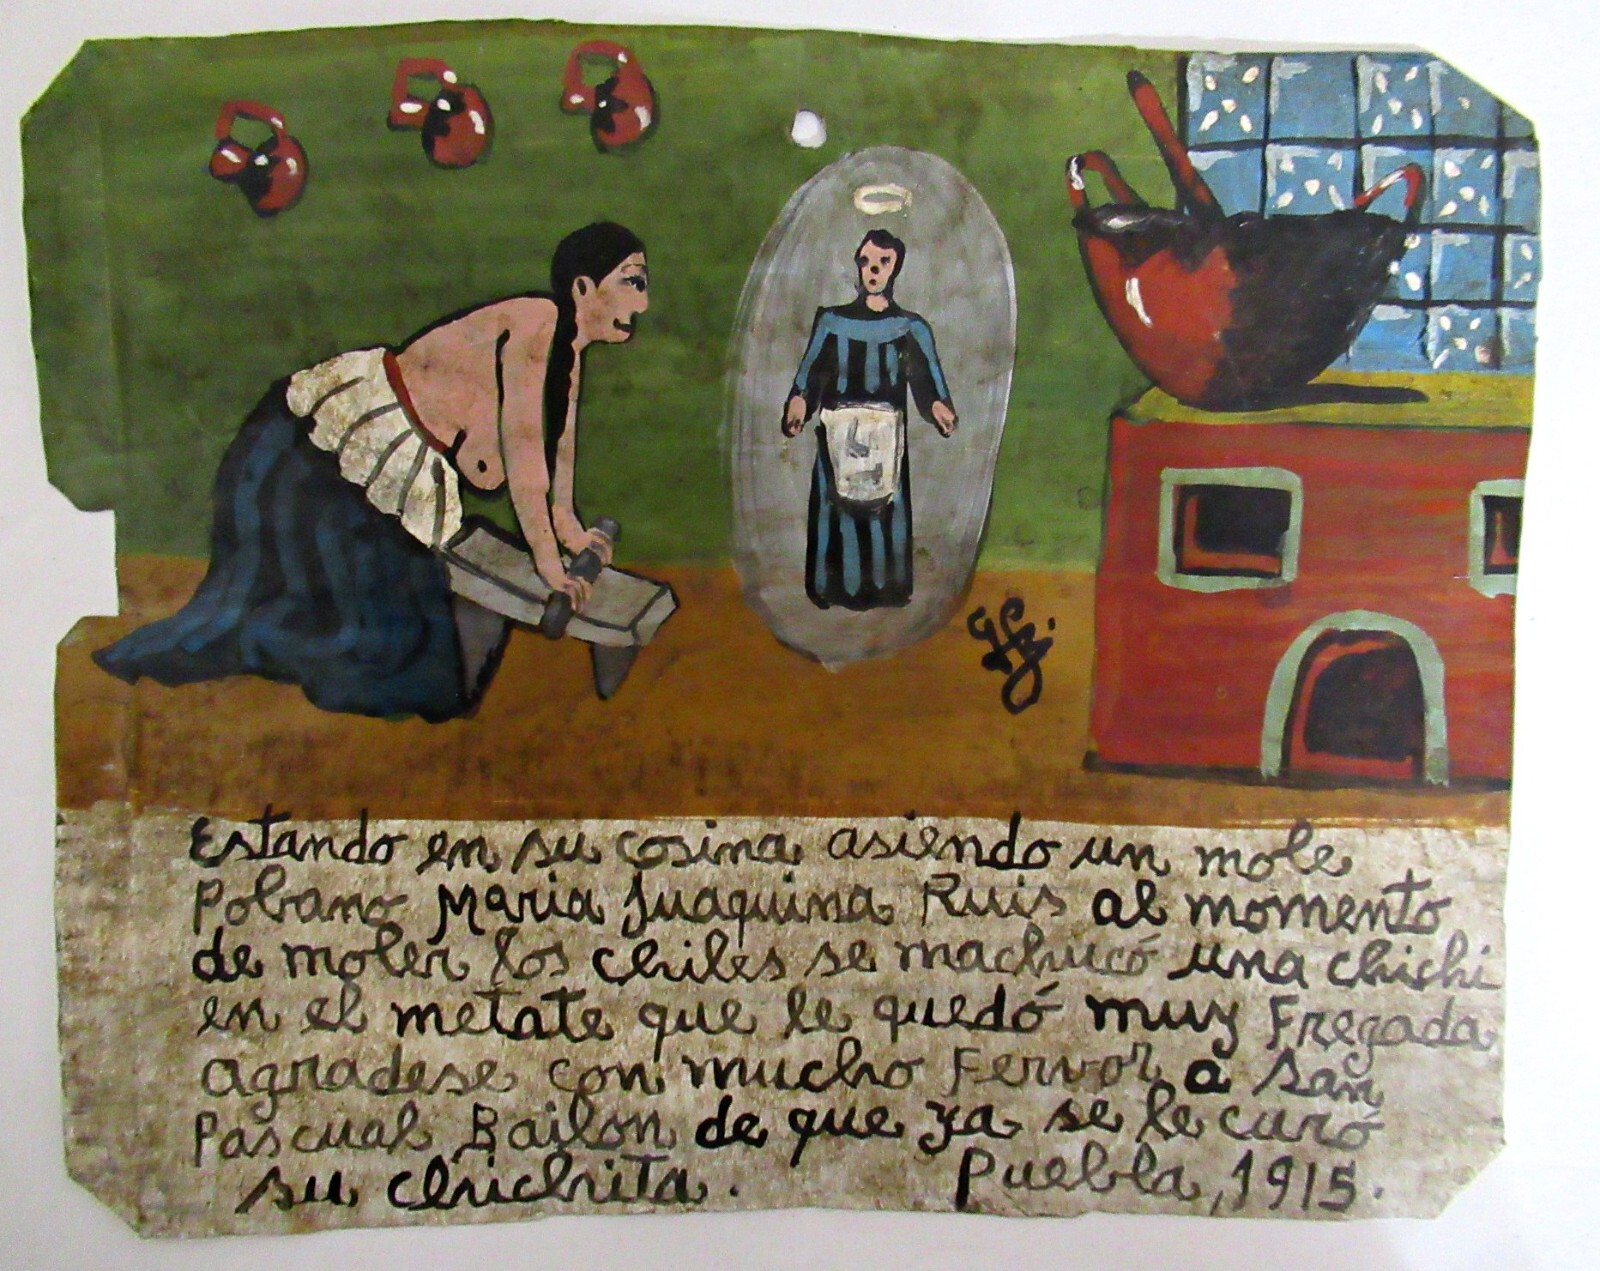 Estando en su cosina asiendo un mole
Pobano Maria Juaquina Ruis al momento
de moler los chiles se machucó una chichi
en el metate que le quedó muy Fregada
agradese con mucho Fervor a San
Pascual Bailon de que ya se le curó
su chichita. Puebla, 1915.